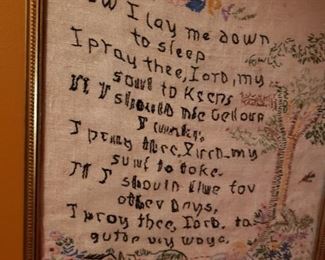 w I lay me down
to sleep
I pray thee, Lord, my
soul to keep
If I should die before
I wake,
I pray thee, Lord, my
soul to take.
If I should live for
other days,
I pray thee, Lord, to
guide my ways.